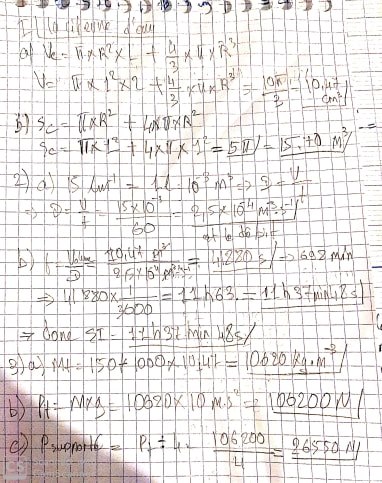 1) La citerne d'eau
a) Vc = π x R² x L + 4/3 x π x R³
Vc = π x 1² x 2 + 4/3 x π x R³ = 10π/3 = 10,47 cm³
b) Sc = π x R² + 4 x π x R²
Sc = π x 1² + 4 x π x 1² = 5π = 15.70 m³
2) a) 15 L 1L = 10⁻³ m³ => D = V/t
=> D = V/t = 15 x 10⁻³ / 60 = 2,5 x 10⁻⁴ m³.s⁻¹
est le débit
b) t = Volume/D = 10,47 m³ / 2,5 x 10⁻⁴ m³.s⁻¹ = 41880 s => 698 min
=> 41880 x 1/3600 = 11h63 = 11h37min48s
=> Donc SI = 11h37min48s
3) a) Mt = 150 + 1000 x 10,47 = 10620 kg.m⁻³
b) Pt = M x g = 10620 x 10 m.s⁻² = 106200 N
c) P supporté = Pt ÷ 4 = 106200/4 = 26550 N